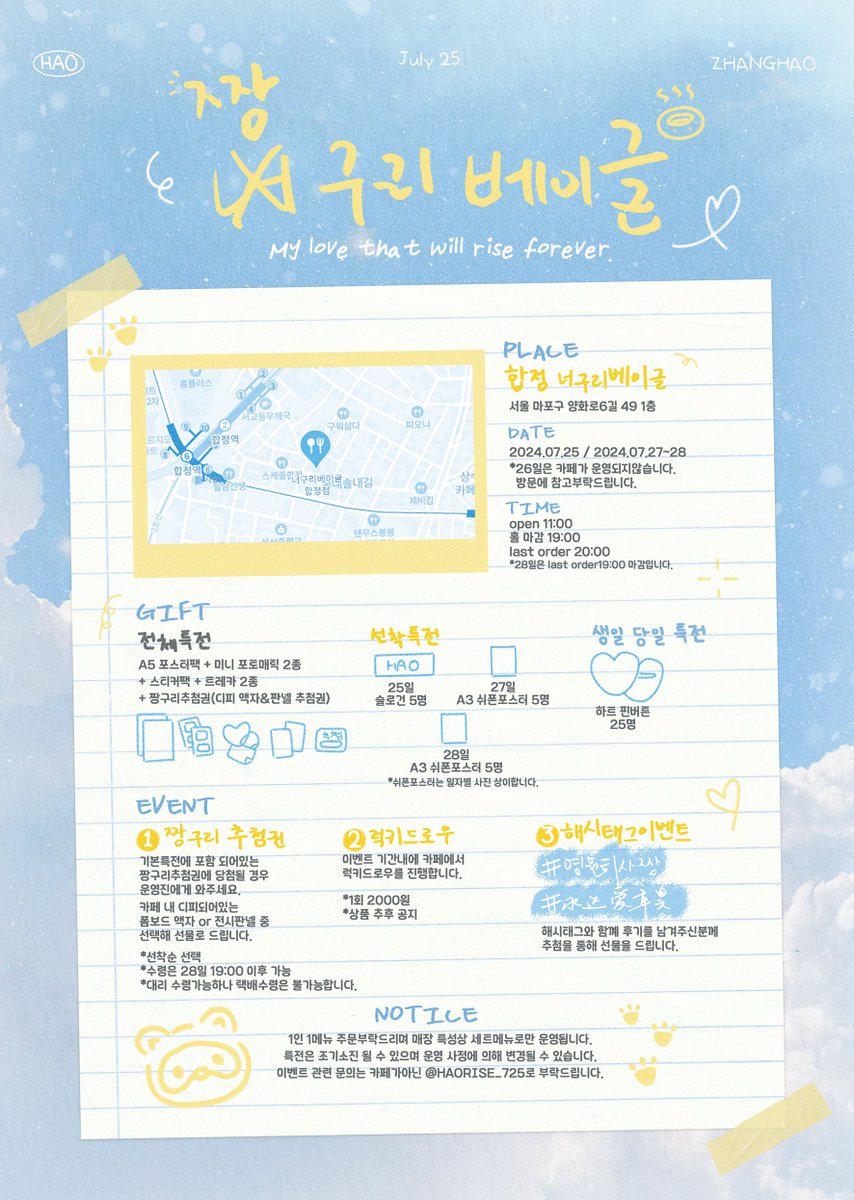 HAO
July 25
ZHANGHAO
짱
구리 베이글
My love that will rise forever.
홈플러스
서교동우체국
합정역
합정역
구워삶다
피오니
스케줄합정
너구리베이글
합정점
제비집
텐무스봉봉
PLACE
합정 너구리베이글
서울 마포구 양화로6길 49 1층
DATE
2024.07.25 / 2024.07.27~28
*26일은 카페가 운영되지않습니다.
방문에 참고부탁드립니다.
TIME
open 11:00
홀 마감 19:00
last order 20:00
*28일은 last order19:00 마감입니다.
GIFT
전체특전
A5 포스터팩 + 미니 포로매틱 2종
+ 스티커팩 + 트레카 2종
+ 짱구리추첨권(디피 액자&판넬 추첨권)
추첨
선착특전
HAO
25일
슬로건 5명
27일
A3 쉬폰포스터 5명
28일
A3 쉬폰포스터 5명
*쉬폰포스터는 일자별 사진 상이합니다.
생일 당일 특전
하트 핀버튼
25명
EVENT
1 짱구리 추첨권
기본특전에 포함 되어있는
짱구리추첨권에 당첨될 경우
운영진에게 와주세요.
카페 내 디피되어있는
폼보드 액자 or 전시판넬 중
선택해 선물로 드립니다.
*선착순 선택
*수령은 28일 19:00 이후 가능
*대리 수령가능하나 택배수령은 불가능합니다.
2 럭키드로우
이벤트 기간내에 카페에서
럭키드로우를 진행합니다.
*1회 2000원
*상품 추후 공지
3 해시태그이벤트
해시태그와 함께 후기를 남겨주신분께
추첨을 통해 선물을 드립니다.
NOTICE
1인 1메뉴 주문부탁드리며 매장 특성상 세트메뉴로만 운영됩니다.
특전은 조기소진 될 수 있으며 운영 사정에 의해 변경될 수 있습니다.
이벤트 관련 문의는 카페가아닌 @HAORISE_725로 부탁드립니다.